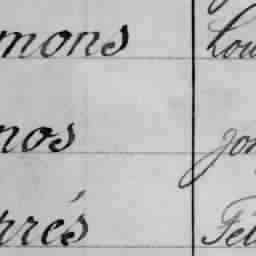 mons Lou
nos Jon
rrés Fél